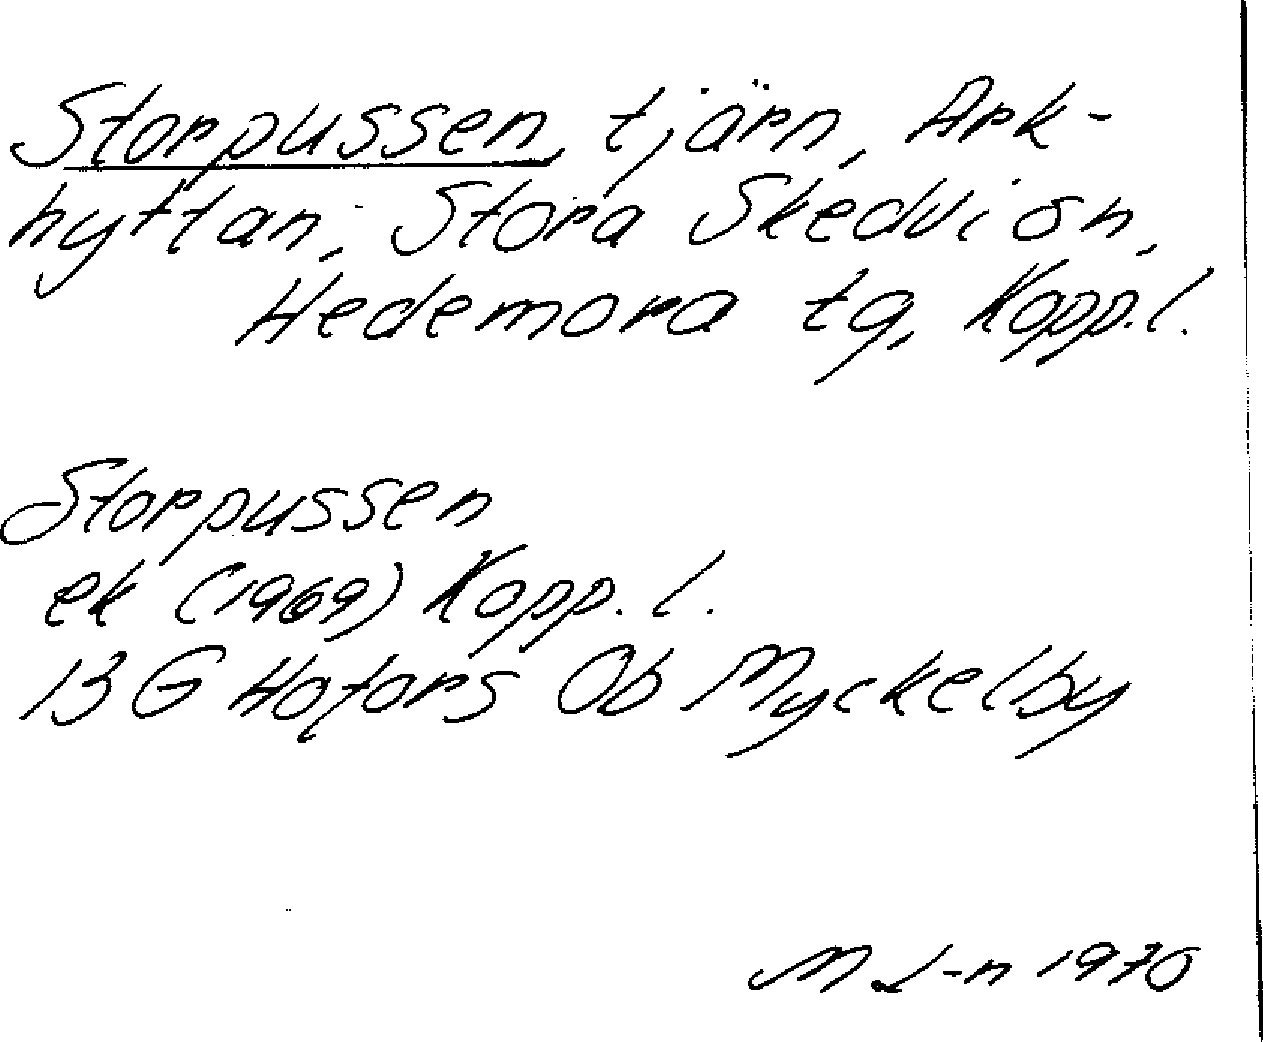 Storpussen, tjärn, Ark-
hyttan, Stora Skedvi sn,
Hedemora tg, Kopp.l.
Storpussen
ek (1969) Kopp. l.
13 G Hofors 0b Myckelby
M L-n 1970